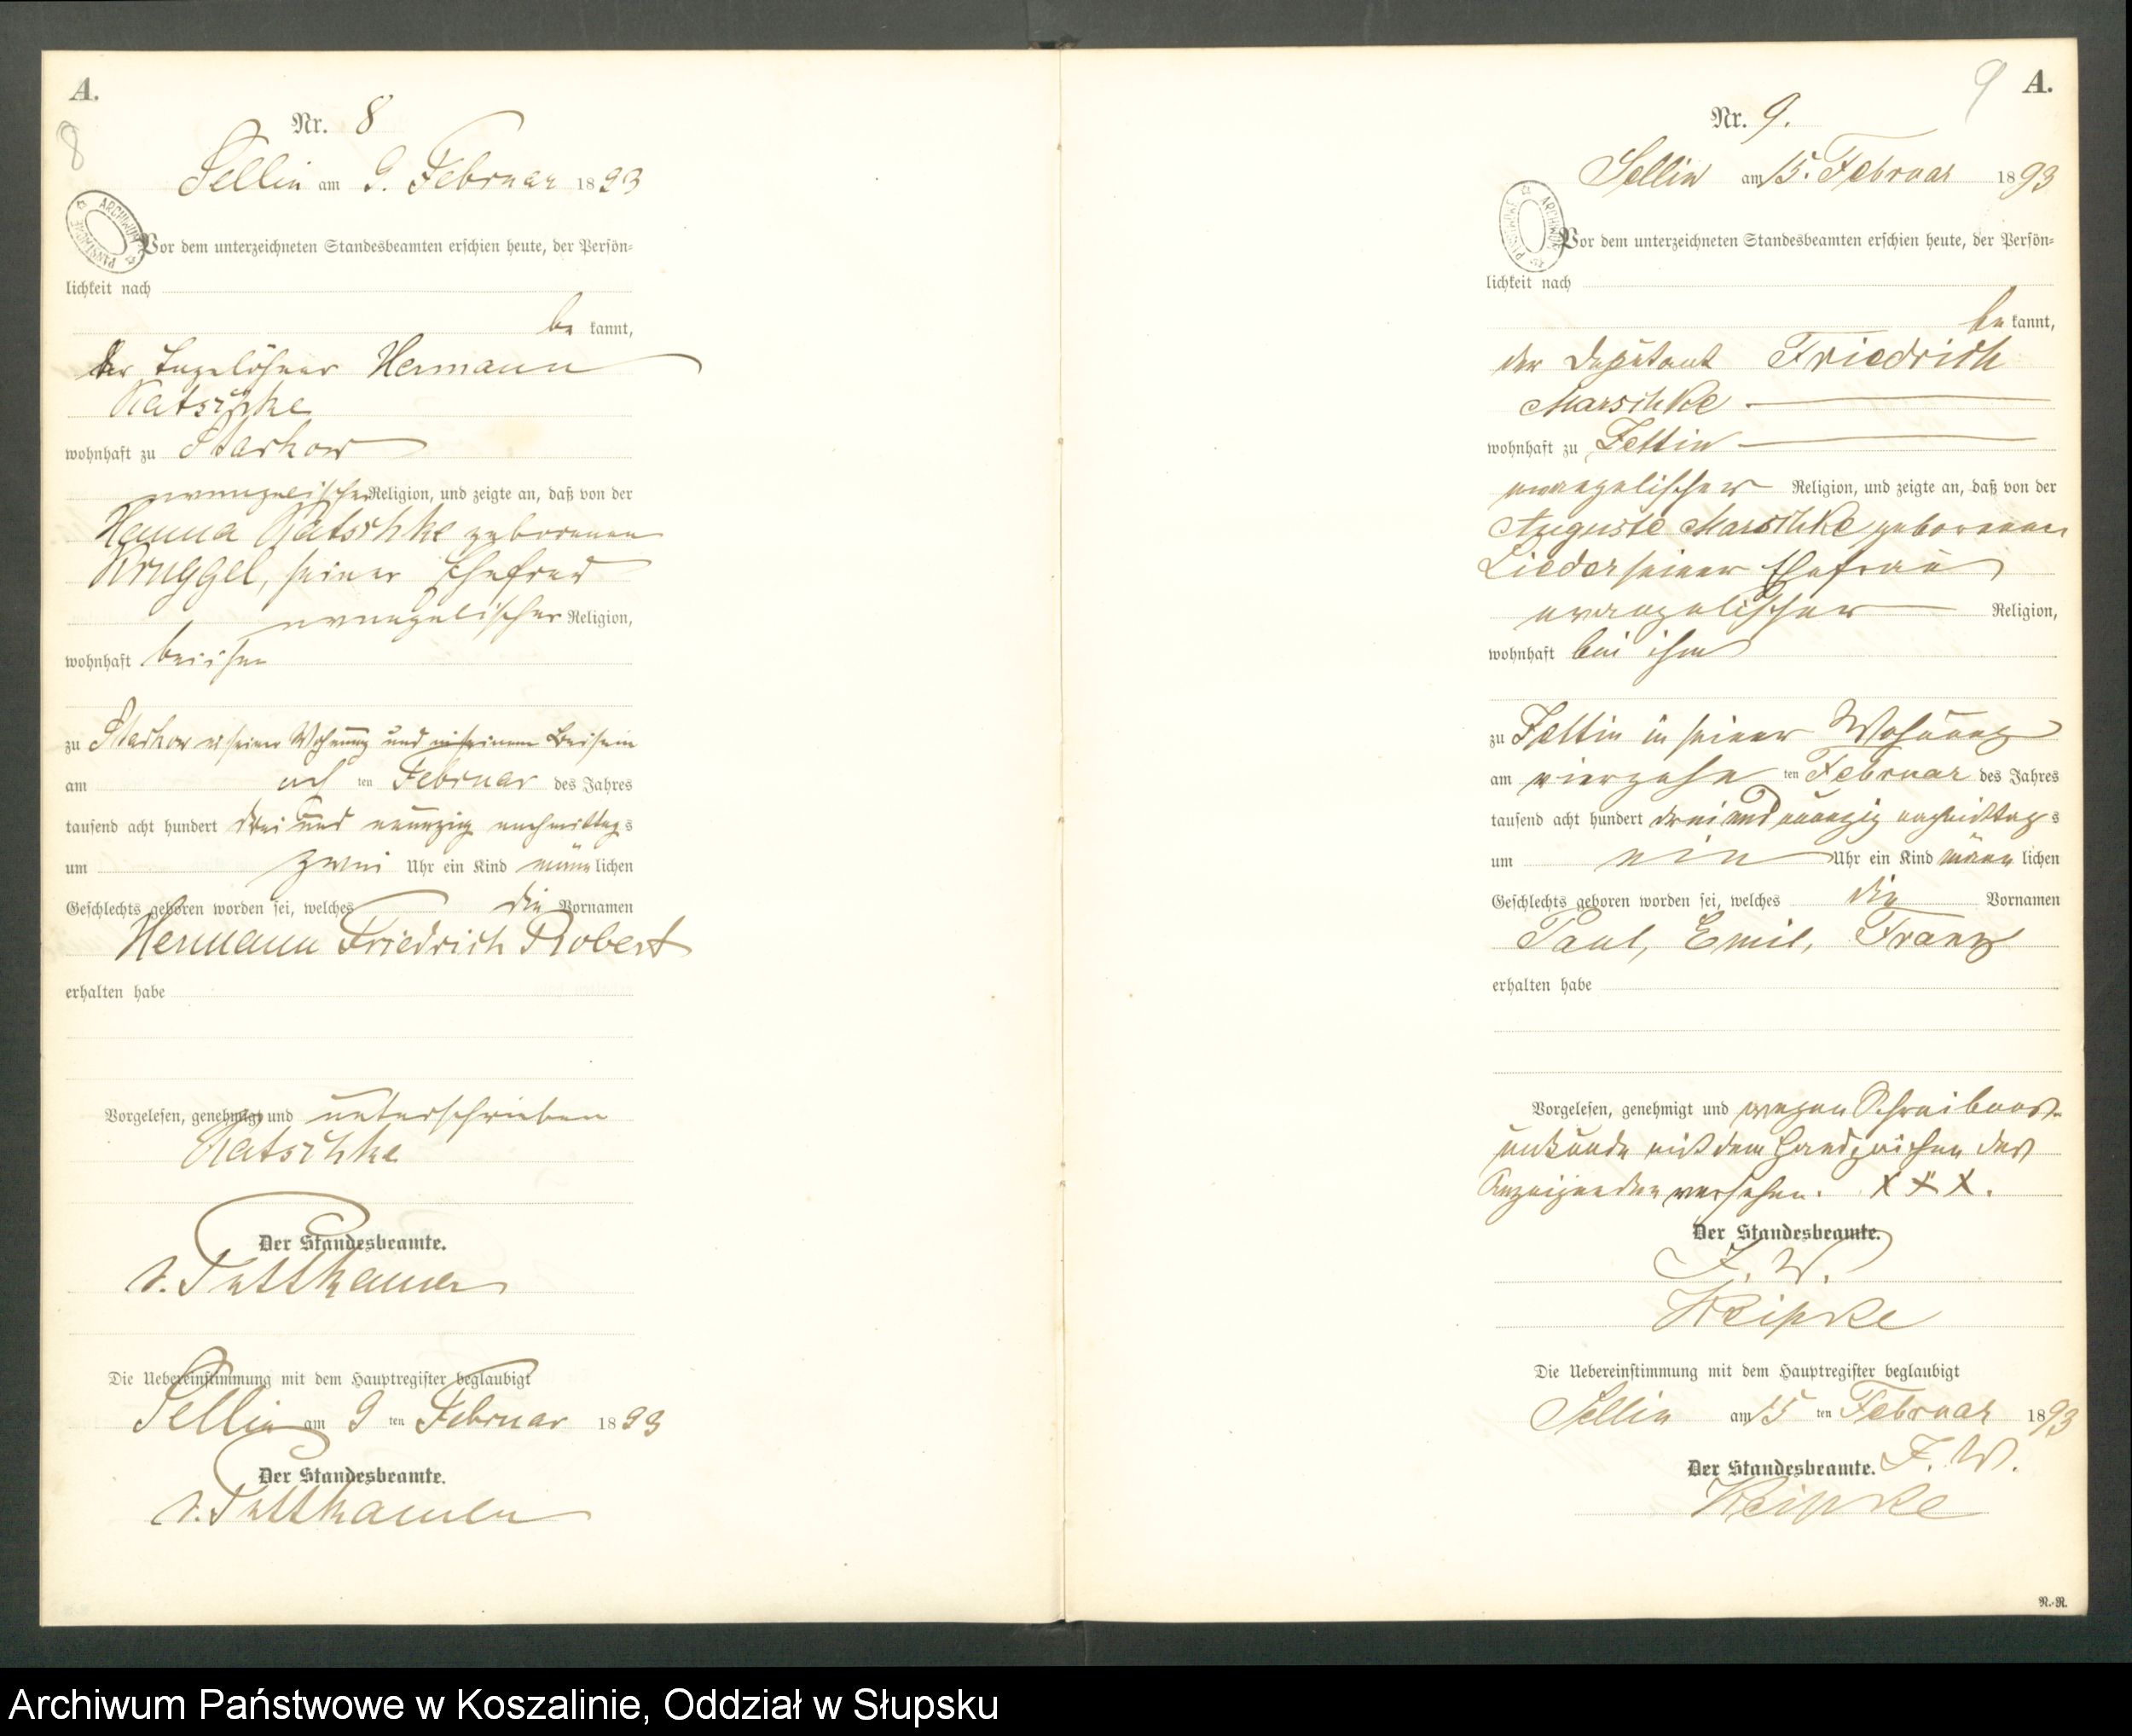 A.
8
Nr. 8
Sellin am 9. Februar 1893
Vor dem unterzeichneten Standesbeamten erschien heute, der Persön-
lichkeit nach
be kannt,
der Tagelöhner Hermann
Ratschke
wohnhaft zu Starkow
evangelischer Religion, und zeigte an, daß von der
Hanna Ratschke geborenen
Kruggel, seiner Ehefrau
evangelischer Religion,
wohnhaft bei ihm
zu Starkow in seiner Wohnung und in seinem Beisein
am acht ten Februar des Jahres
tausend acht hundert drei und neunzig nachmittags
um zwei Uhr ein Kind männlichen
Geschlechts geboren worden sei, welches die Vornamen
Hermann Friedrich Robert
erhalten habe
Vorgelesen, genehmigt und unterschrieben
Ratschke
Der Standesbeamte.
v. Puttkamer
Die Uebereinstimmung mit dem Hauptregister beglaubigt
Sellin am 9 ten Februar 1893
Der Standesbeamte.
v. Puttkamer
9 A.
Nr. 9.
Sellin am 15. Februar 1893
Vor dem unterzeichneten Standesbeamten erschien heute, der Persön-
lichkeit nach
be kannt,
der Deputant Friedrich
Marschke
wohnhaft zu Zettin
evangelischer Religion, und zeigte an, daß von der
Auguste Marschke geborenen
Lieder seiner Ehefrau
evangelischer Religion,
wohnhaft bei ihm
zu Zettin in seiner Wohnung
am vierzehn ten Februar des Jahres
tausend acht hundert drei und neunzig nachmittags
um ein Uhr ein Kind männlichen
Geschlechts geboren worden sei, welches die Vornamen
Paul, Emil, Franz
erhalten habe
Vorgelesen, genehmigt und wegen Schreibens-
unkunde mit dem Handzeichen des
Anzeigenden versehen. X X X.
Der Standesbeamte.
Reipke
Die Uebereinstimmung mit dem Hauptregister beglaubigt
Sellin am 15 ten Februar 1893
Der Standesbeamte.
Reipke
R.-R.
Archiwum Państwowe w Koszalinie, Oddział w Słupsku